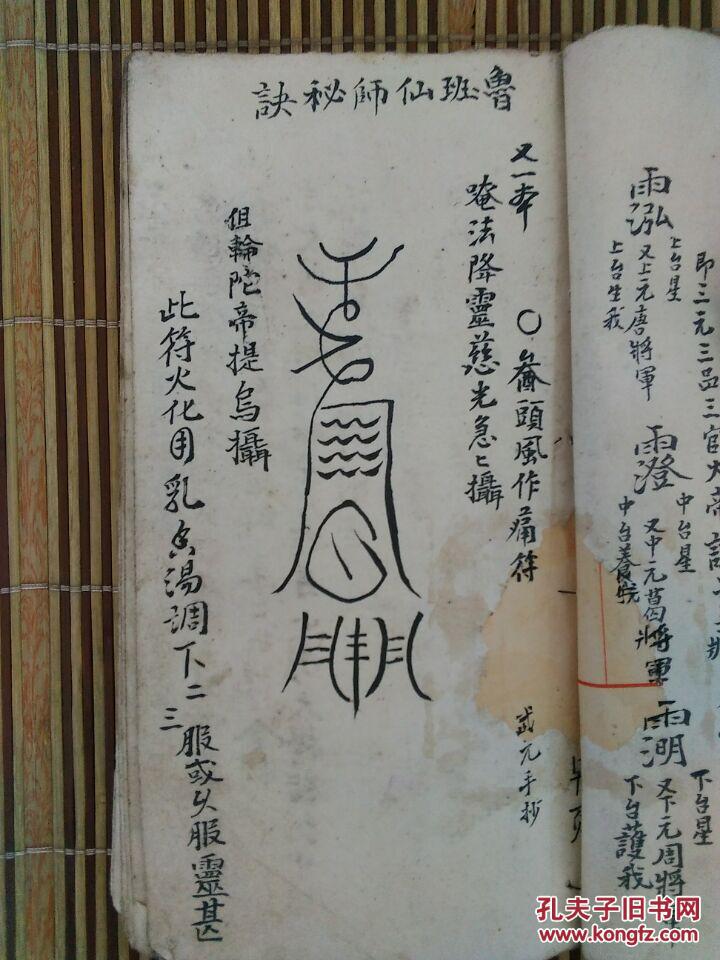 魯班仙師秘訣
又一本
○ 畨頭風作痛符
唵法降靈慈光急々攝
伹輪陀帝提烏攝
此符火化用乳香湯調下二三服或久服靈甚
武元手抄
即三元三品三官大帝
雨泓
上台星
又上元唐將軍
上台生我
雨澄
中台星
又中元葛將軍
中台養我
雨湖
下台星
又下元周將軍
下台護我
孔夫子旧书网
www.kongfz.com